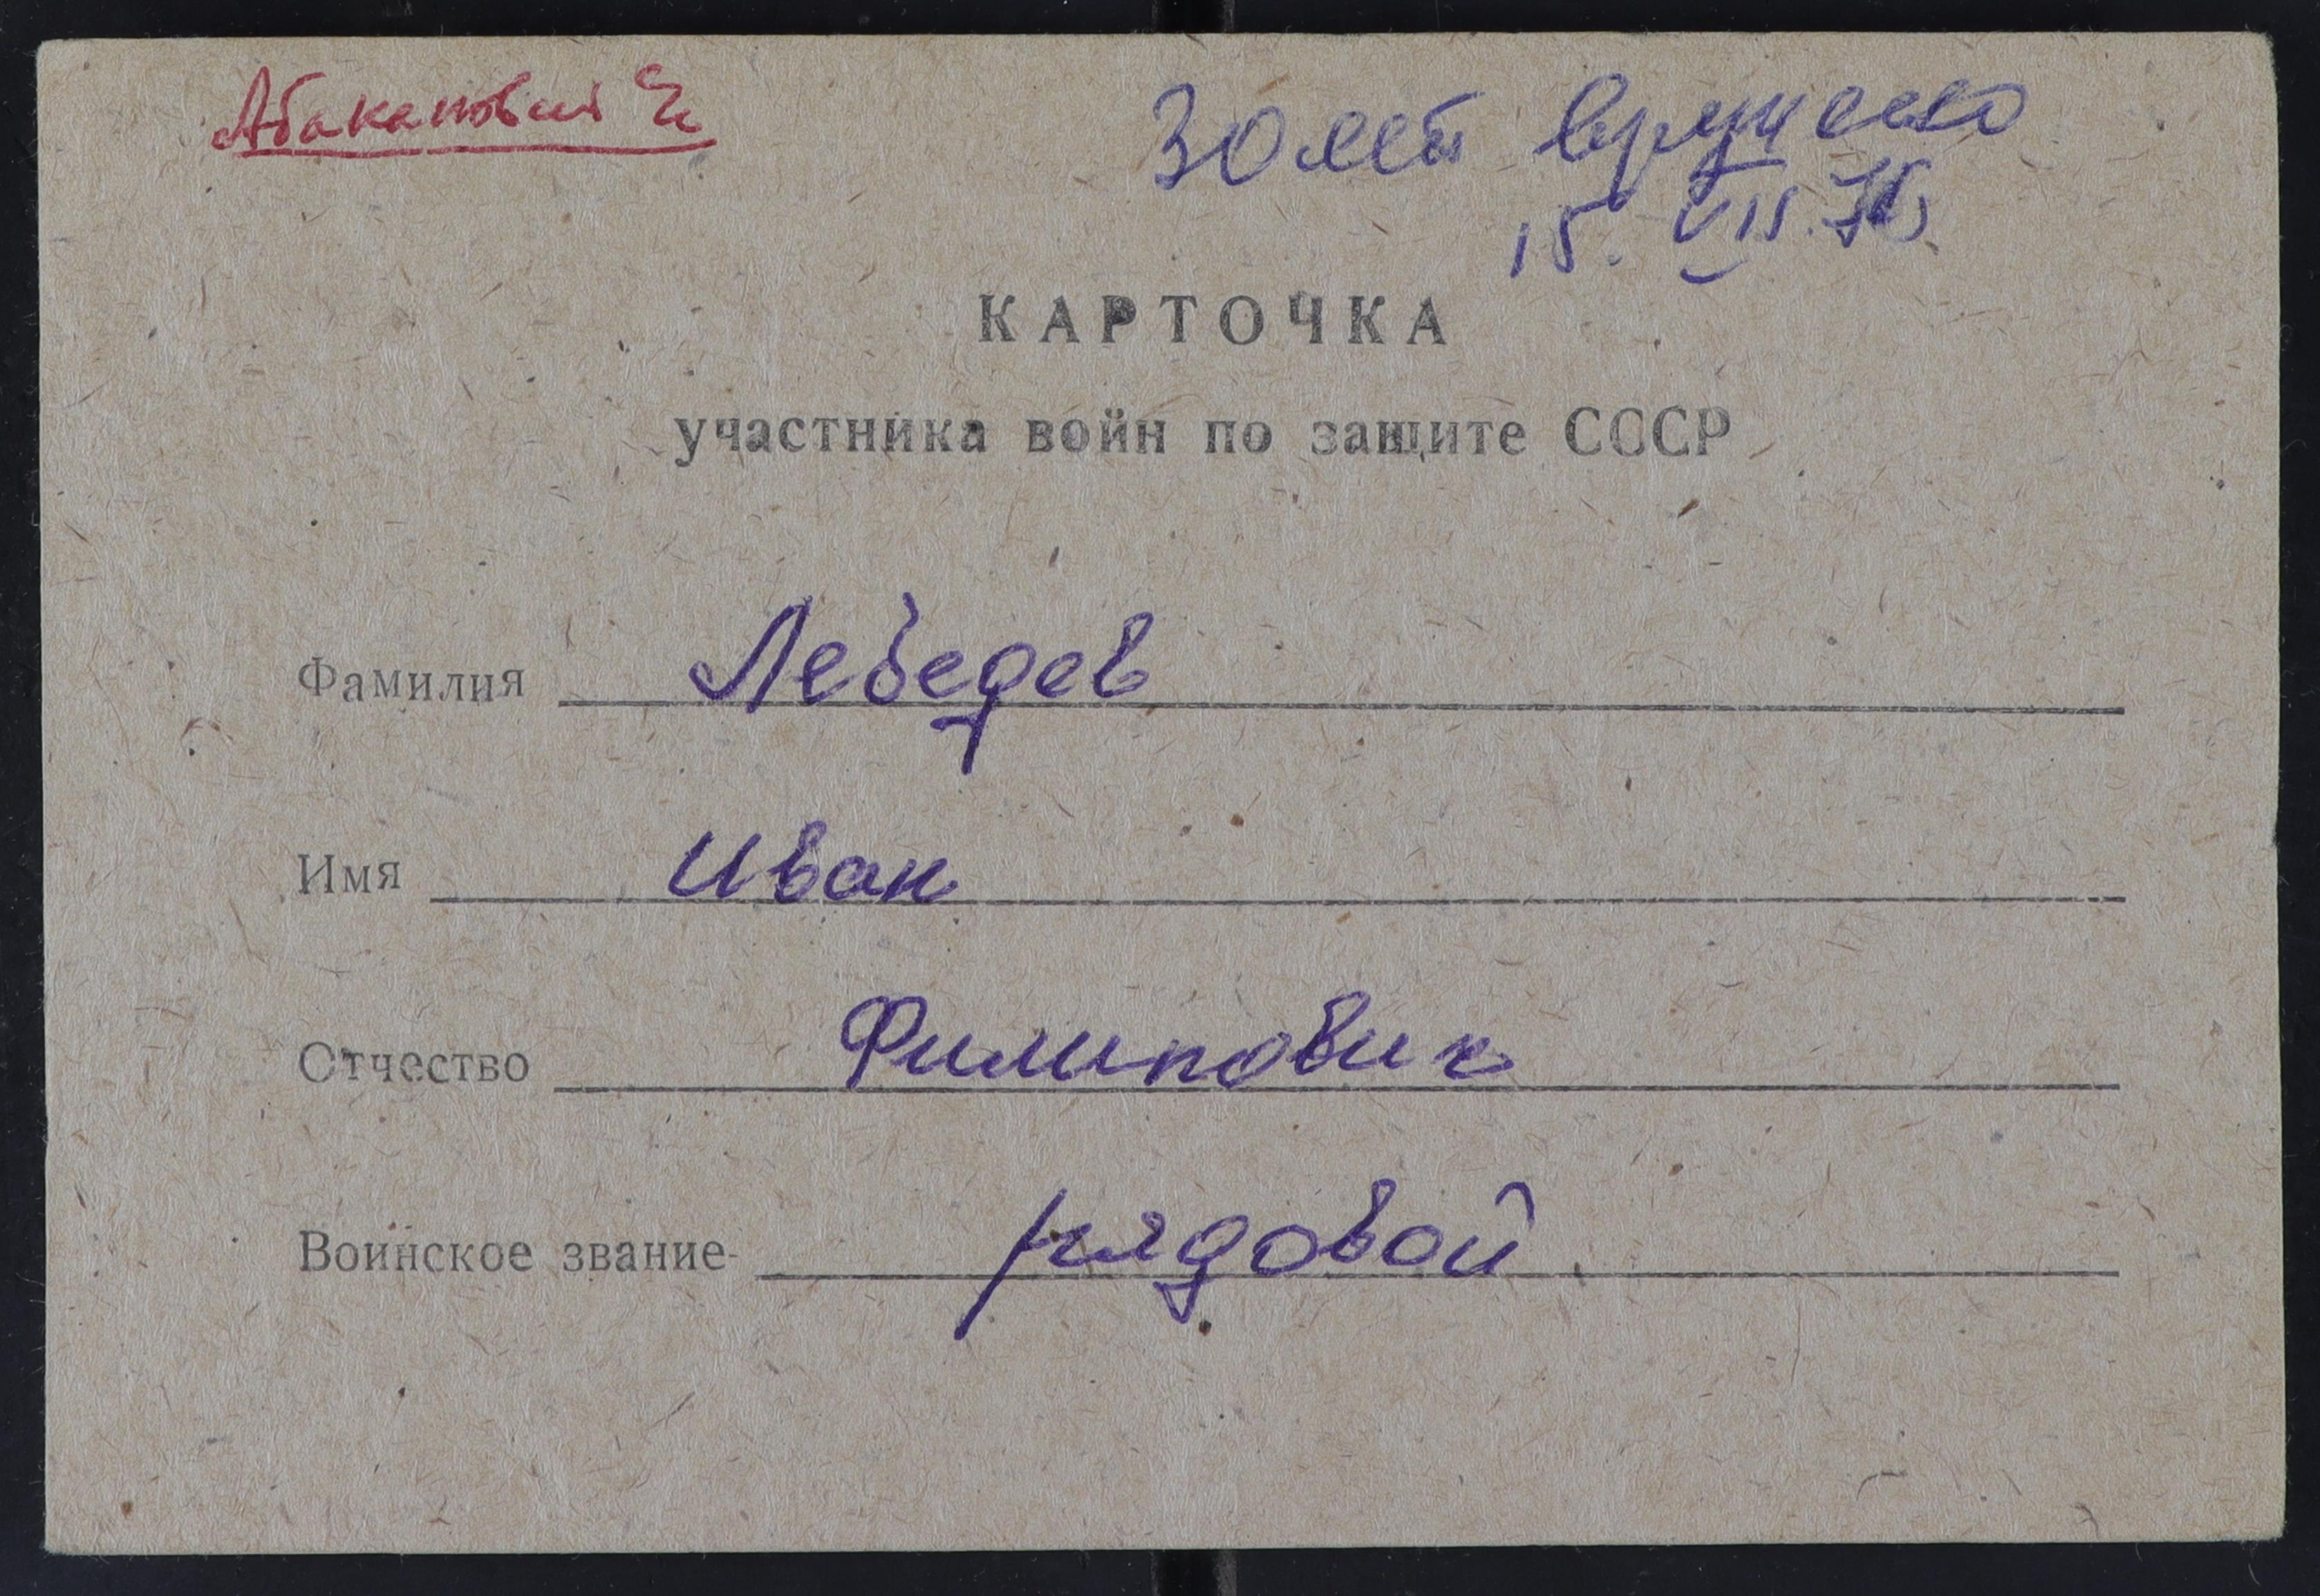 30 лет вручено
15. VII.
КАРТОЧКА
участника войн по защите СССР
Фамилия Лебедев
Имя Иван
Отчество Филипович
Воинское звание рядовой